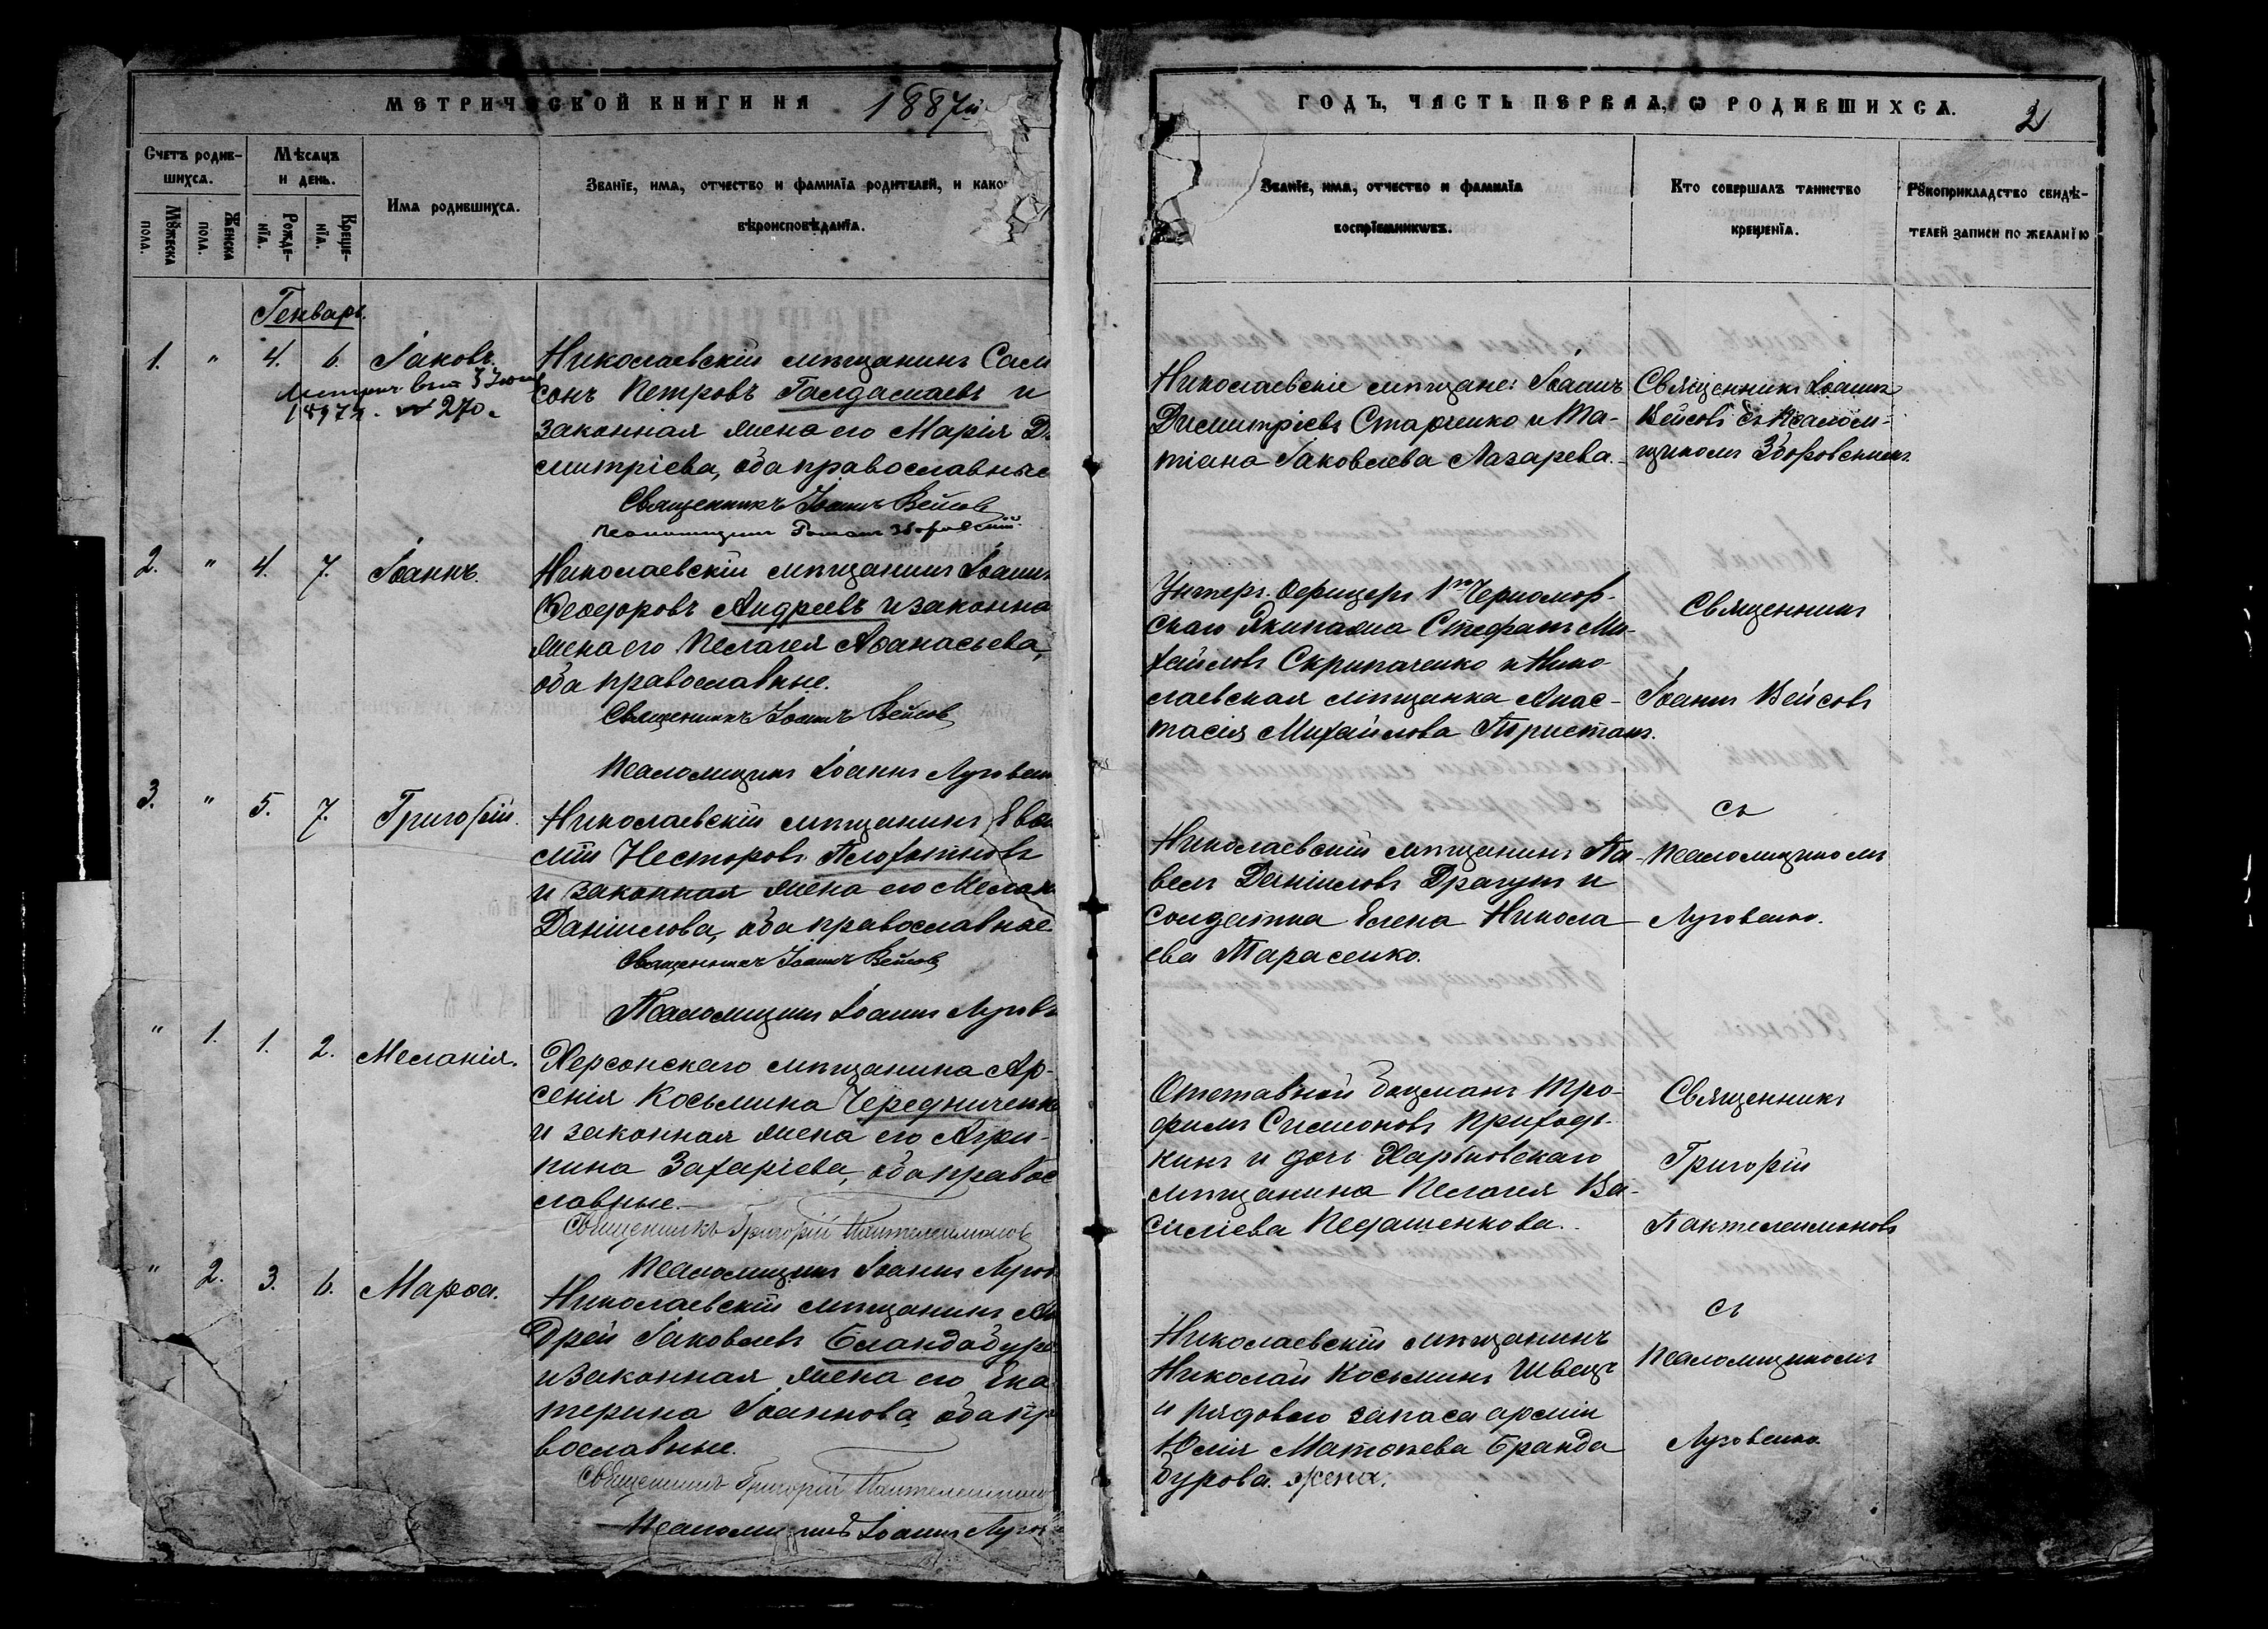 МЕТРИЧЕСКОЙ КНИГИ НА 1887й
ГОДЪ, ЧАСТЬ ПЕРВАЯ, Ѡ РОДИВШИХСЯ. 2
Счетъ родив-
шихся.
Мѣсяцъ
и день.
Мꙋжеска
пола.
Женска
пола.
Рожде-
нїя.
Креще-
нїя.
Имя родившихся.
Званїе, имя, отчество и фамилїя родителей, и како
вѣроисповѣданїя.
Званїе, имя, отчество и фамилїя
воспрїемникѡвъ.
Кто совершалъ таинство
крещенїя.
Рꙋкоприкладство свидѣ-
телей записи по желанїю
Генварь.
1. " 4. 6. Іаковъ.
1897 г. № 270.
Николаевскій мѣщанинъ Сам
сонъ Петровъ Галдамаевъ и
законная жена его Марія Д
митріева, оба православные
Священникъ Іоаннъ Вейсовъ
Псаломщикъ Романъ Зборовскій
Николаевскіе мѣщане: Іоаннъ
Димитріевъ Старченко и Та-
тіана Іаковлева Лазарева.
Священникъ Іоаннъ
Вейсовъ съ псалом-
щикомъ Зборовскимъ.
2. " 4. 7. Іоаннъ.
Николаевскій мѣщанинъ Іоаннъ
Ѳеодоровъ Андреевъ и законна
жена его Пелагея Аѳанасьева,
оба православные.
Священникъ Іоаннъ Вейсовъ
Псаломщикъ Іоаннъ Луговен
Унтеръ-офицеръ 1го Черномор-
скаго Экипажа Стефанъ Ми-
хайловъ Скрипаченко и Нико
лаевская мѣщанка Анас-
тасія Михайлова Тристанъ.
Священникъ
Іоаннъ Вейсовъ
3. " 5. 7. Григорій.
Николаевскій мѣщанинъ Евѳи
мій Несторовъ Плохотновъ
и законная жена его Мелан
Даніилова, оба православные
Священникъ Іоаннъ Вейсовъ
Псаломщикъ Іоаннъ Лугов
Николаевскій мѣщанинъ Па-
велъ Даніиловъ Драгунъ и
солдатка Елена Никола
ева Тарасенко.
съ
Псаломщикомъ
Луговенко.
" 1. 1. 2. Меланія.
Херсонскаго мѣщанина Ар-
сенія Косьмина Чередниченко
и законная жена его Агри-
пина Захаріева, оба правос
лавные.
Священникъ Григорій Пантелеимоновъ
Псаломщикъ Іоаннъ Лугов
Отставной боцманъ Тро-
фимъ Симоновъ Приходь-
кинъ и дочь Харьковскаго
мѣщанина Пелагея Ва-
силіева Педашенкова.
Священникъ
Григорій
Пантелеимоновъ
" 2. 3. 6. Марѳа.
Николаевскій мѣщанинъ Ан
дрей Іаковлевъ Бландабура
и законная жена его Ека
терина Іоаннова, оба пр
вославные.
Священникъ Григорій Пантелеимоно
Псаломщикъ Іоаннъ Лугов
Николаевскій мѣщанинъ
Николай Косьминъ Швецъ
и рядового запаса арміи
Юлія Матѳеева Бранда
бурова. жена.
съ
Псаломщикомъ
Луговенко.